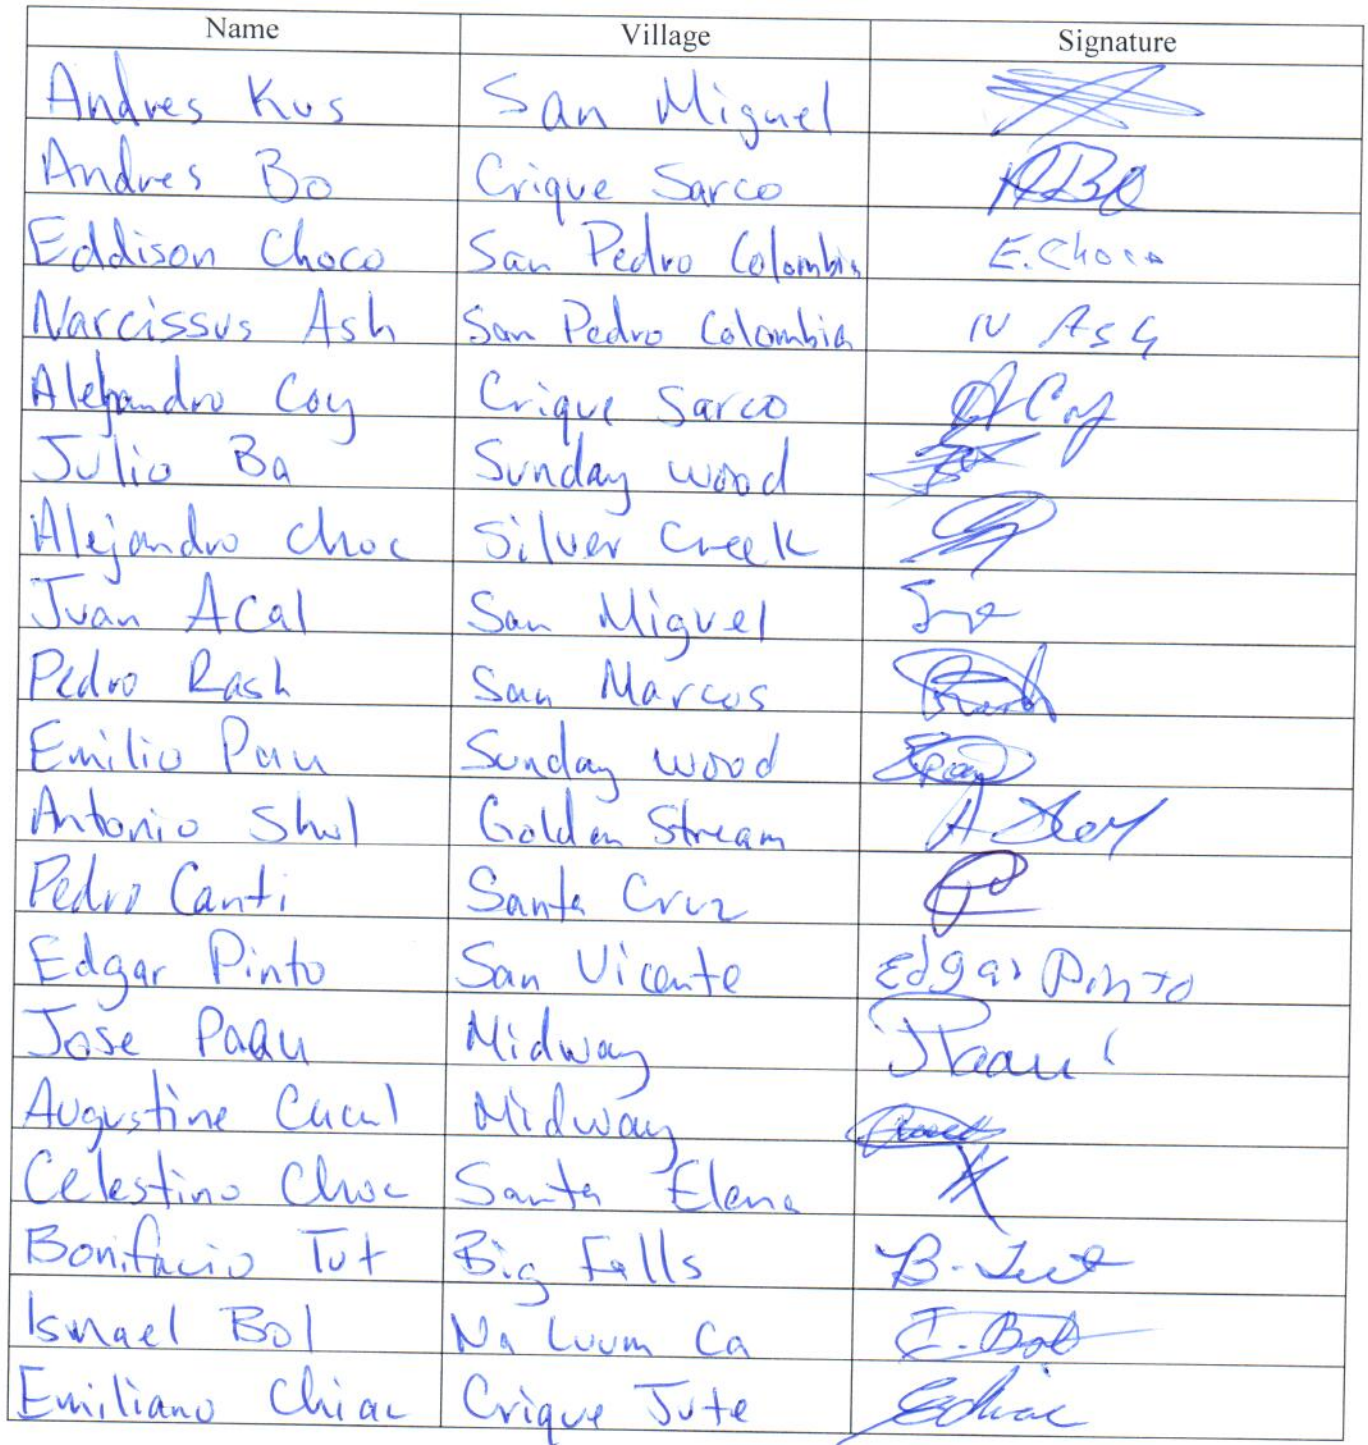 Name Village Signature
Andres Kus San Miguel
Andres Bo Crique Sarco ABo
Eddison Choco San Pedro Colombia E. Choco
Narcissus Ash San Pedro Colombia N Ash
Alejandro Coy Crique Sarco A Coy
Julio Ba Sunday wood
Alejandro Choc Silver Creek
Juan Acal San Miguel
Pedro Rash San Marcos Rash
Emilio Pau Sunday wood
Antonio Shol Golden Stream A Shol
Pedro Canti Santa Cruz
Edgar Pinto San Vicente Edgar Pinto
Jose Paau Midway JPaau
Augustine Cucul Midway
Celestino Choc Santa Elena
Bonifacio Tut Big Falls B. Tut
Ismael Bol Na Luum Ca I. Bol
Emiliano Chiac Crique Jute EChiac